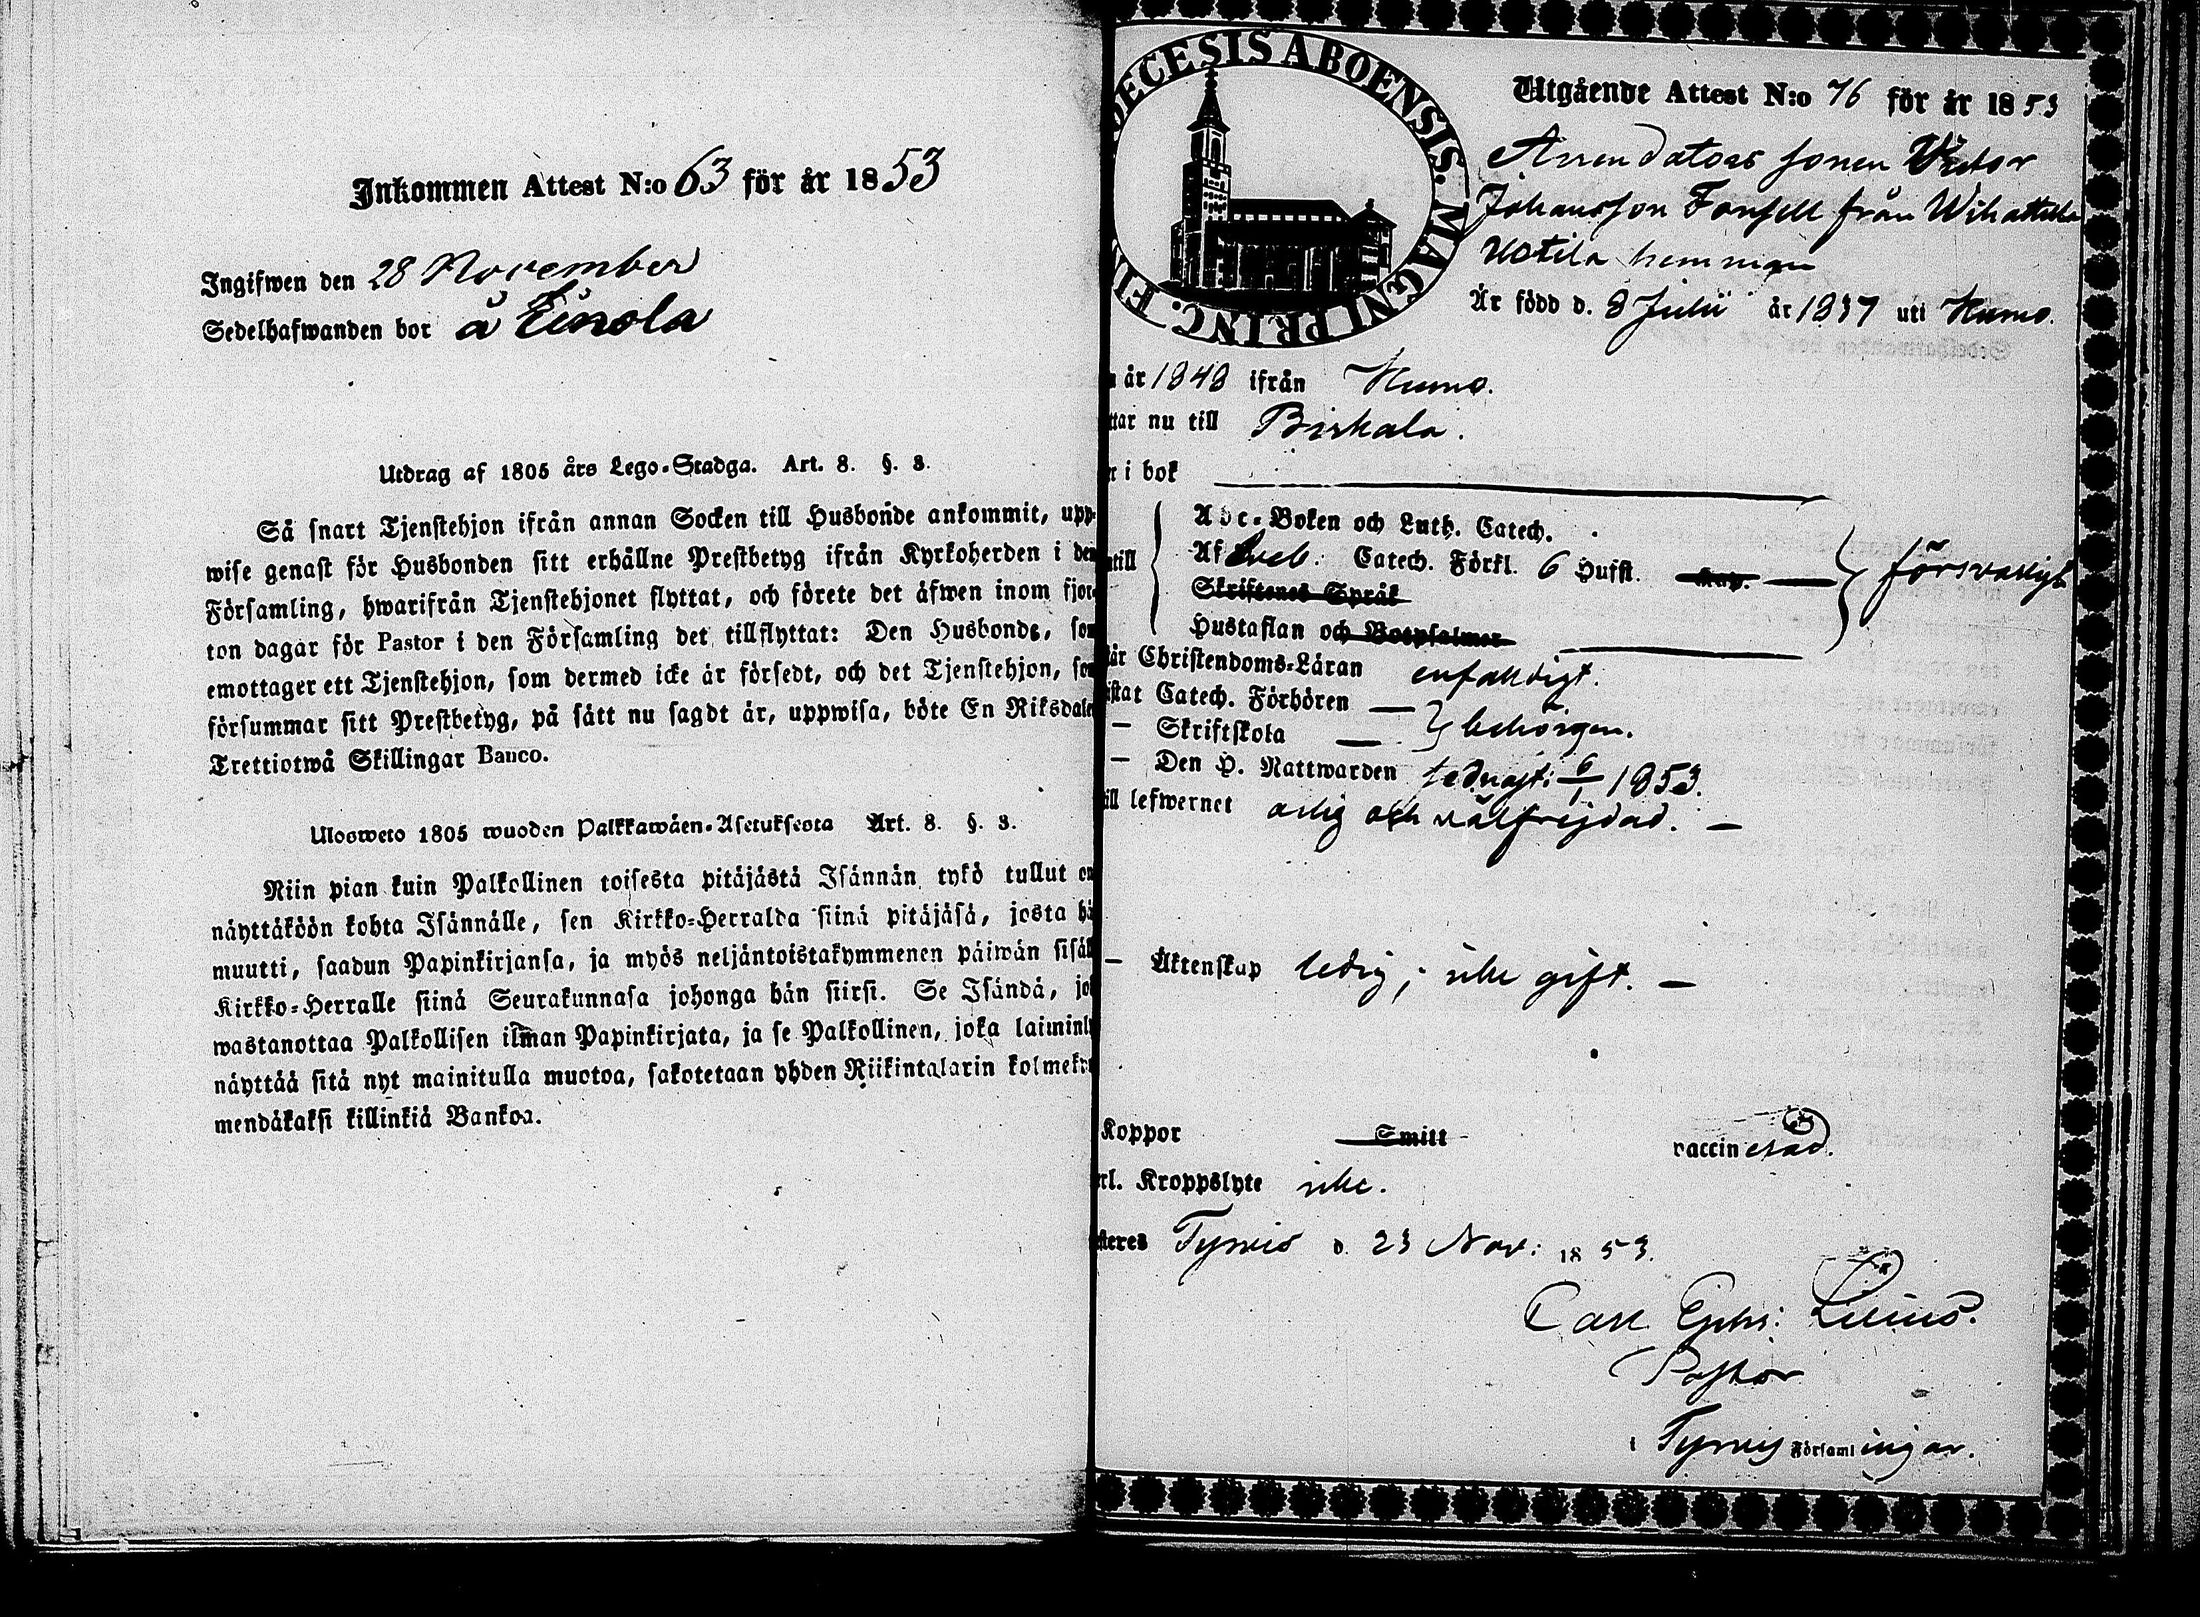 Inkommen Attest N:o 63 för år 1853
Ingifwen den 28 November
Sedelhafwanden bor å Einola
Utdrag af 1805 års Lego-Stadga. Art. 8. §. 8.
Så snart Tjenstehjon ifrån annan Socken till Husbonde ankommit, upp-
wise genast för Husbonden sitt erhållne Prestbetyg ifrån Kyrkoherden i den
Församling, hwarifrån Tjenstehjonet flyttat, och förete det äfwen inom fjor-
ton dagar för Pastor i den Församling det tillflyttat: Den Husbonde, som
emottager ett Tjenstehjon, som dermed icke är försedt, och det Tjenstehjon, som
försummar sitt Prestbetyg, på sätt nu sagdt är, uppwisa, böte En Riksdaler
Trettiotwå Skillingar Banco.
Ulosweto 1805 wuoden Palkkawäen-Asetuksesta Art. 8. §. 8.
Niin pian kuin Palkollinen toisesta pitäjästä Isännän tykö tullut on
näyttäköön kohta Isännälle, sen Kirkko-Herralda siinä pitäjäsä, josta hä
muutti, saadun Papinkirjansa, ja myös neljäntoistakymmenen päiwän sisäl
Kirkko-Herralle siinä Seurakunnasa johonga hän siirsi. Se Isändä, jo
wastanottaa Palkollisen ilman Papinkirjata, ja se Palkollinen, joka laiminl
näyttää sitä nyt mainitulla muotoa, sakotetaan yhden Riikintalarin kolmeky
mendäkaksi killinkiä Bankoa.
DECESIS ABOENSIS. MAGNI PRINC. FIN
Utgående Attest N:o 76 för år 1853
Arrendators sonen Victor
Johansson Forssell från Wihattula
Uotila hemman
Är född d. 8 Julii år 1837 uti Kumo.
år 1848 ifrån Kumo.
ttar nu till Birkala.
i bok
Abc-Boken och Luth. Catech.
Af Sveb. Catech. Förkl. 6 Hufst. försvarligt
Skriftenes Språk
Hustaflan och Botpsalmer
år Christendoms-Läran enfaldigt.
istat Catech. Förhören
— Skriftskola behörigen.
— Den H. Nattwarden sednast: 6/1 1853.
ill lefwernet ärlig och välfrejdad. —
— Äktenskap ledig; icke gift. —
Koppor Smitt vaccinerad.
rl. Kroppslyte icke.
steres Tyrvis d. 23 Nov: 1853.
Carl Ephr: Lilius.
Pastor
i Tyrvis Församlingar.